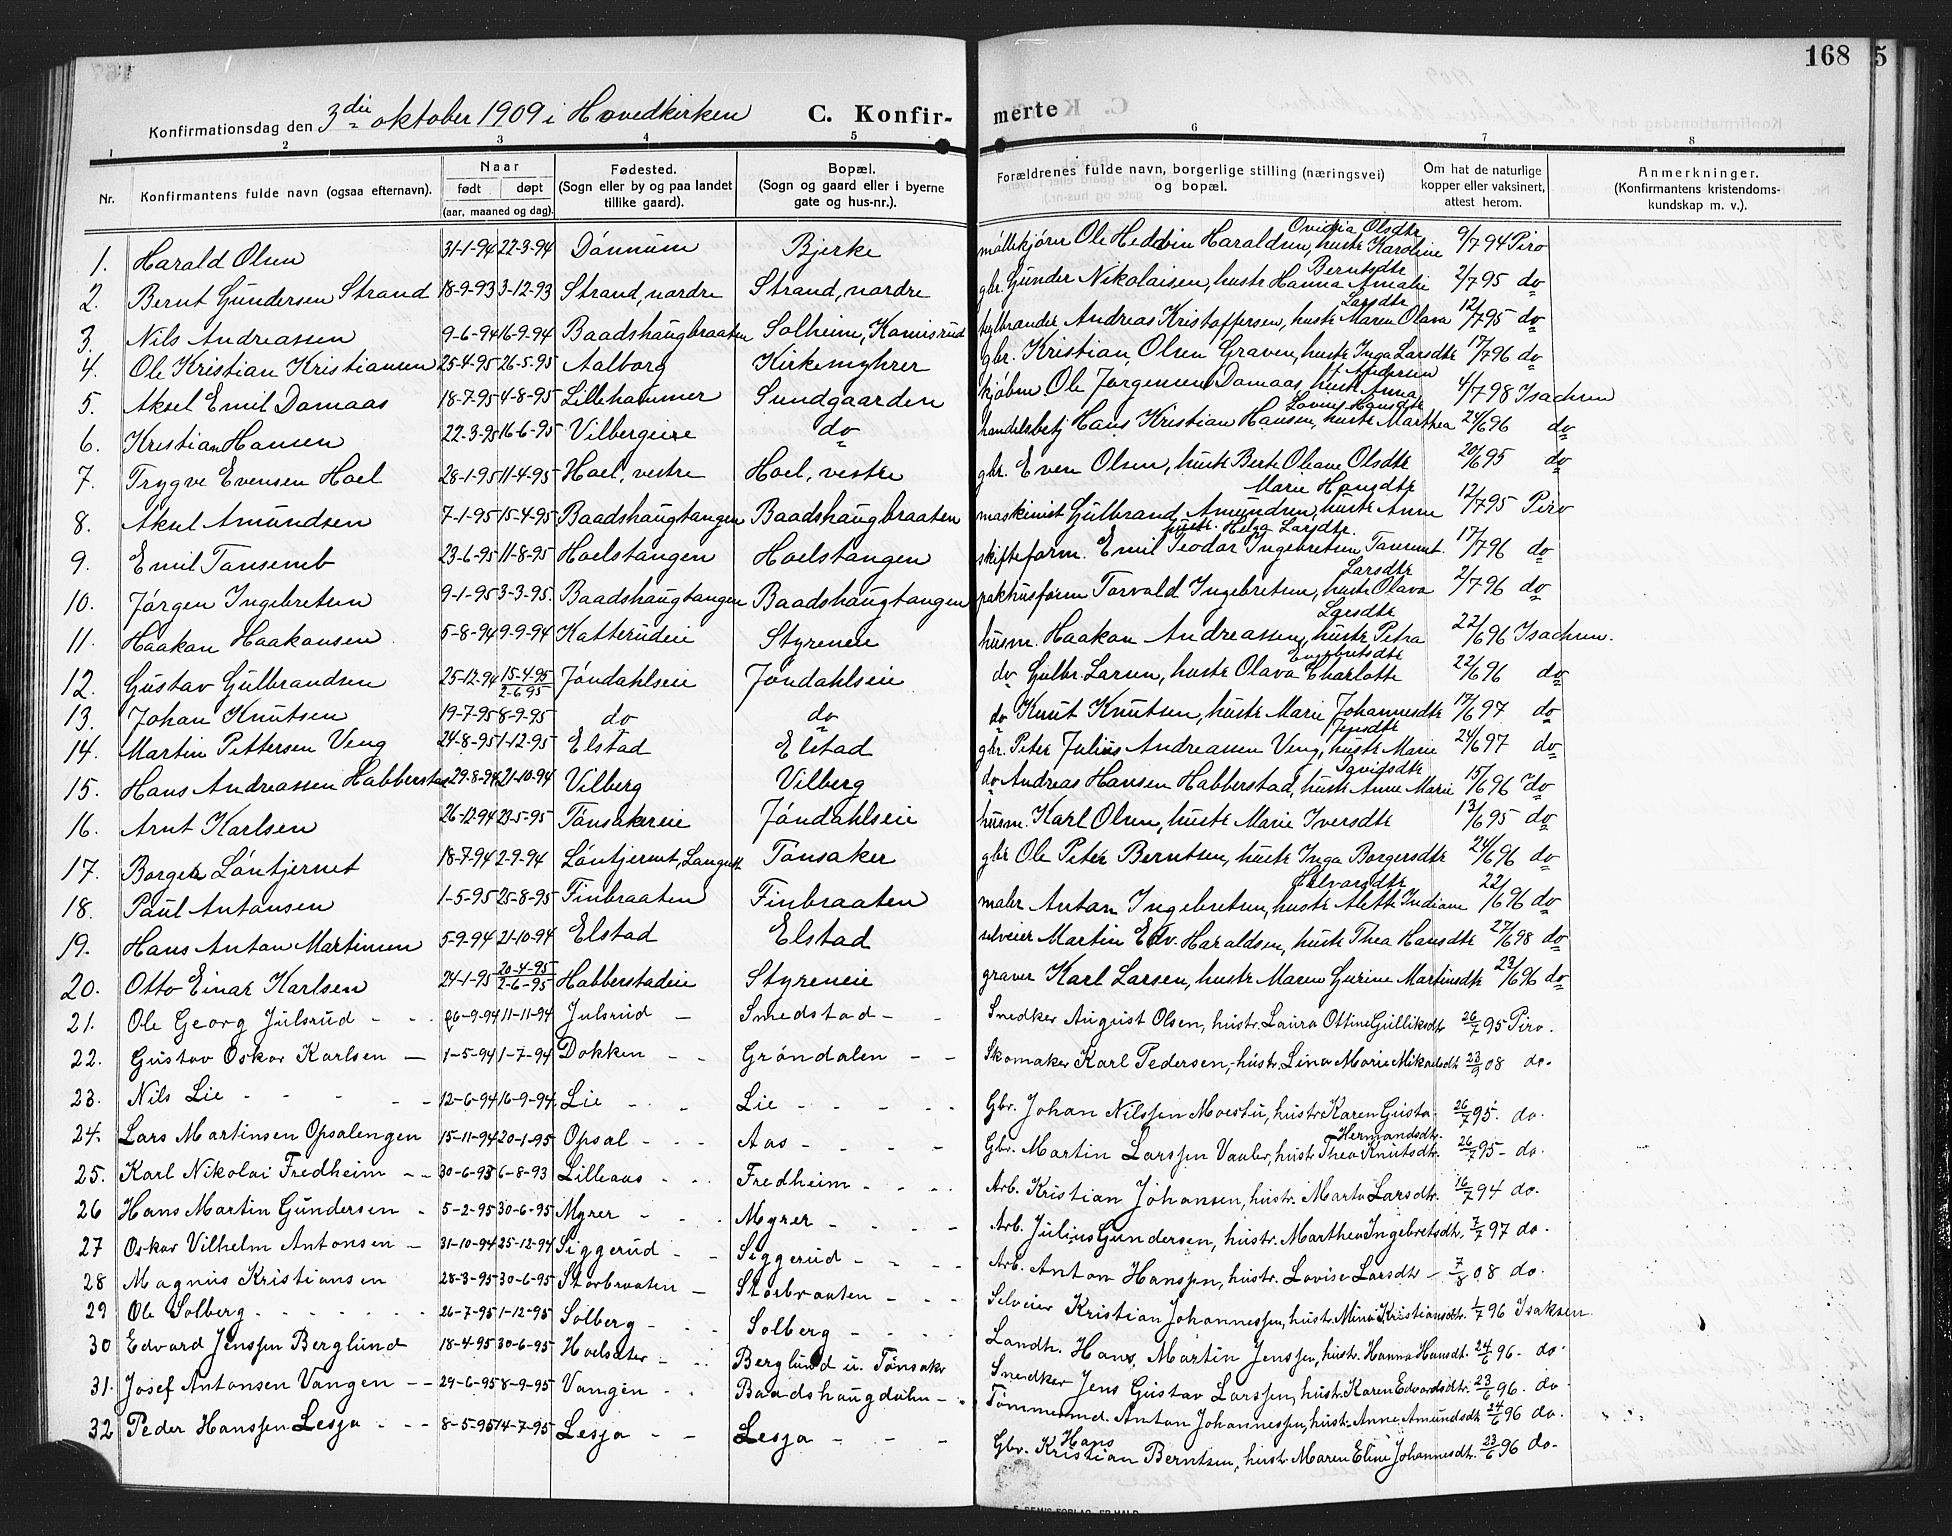 168
5
Konfirmationsdag den 3die oktober 1909 i Hovedkirken C. Konfir- merte
1 2 3 4 5 6 7 8
Nr. Konfirmantens fulde navn (ogsaa efternavn). Naar født døpt (aar, maaned og dag). Fødested. (Sogn eller by og paa landet tillike gaard). Bopæl. (Sogn og gaard eller i byerne gate og hus-nr.). Forældrenes fulde navn, borgerlige stilling (næringsvei) og bopæl. Om hat de naturlige kopper eller vaksinert, attest herom. Anmerkninger. (Konfirmantens kristendoms-kundskap m. v.).
1. Harald Olsen 31-1-94 22-3-94 Dønnum Bjerke møllekjører Ole Hedvin Haraldsen, hustr Karoline Ovidia Olsdtr 9/7 94 Piro
2. Bernt Gundersen Strand 18-9-93 3-12-93 Strand, nordre Strand, nordre gbr. Gunder Nikolaisen, hustr Hanna Amalie Berntsdtr 2/7 95 do
3. Nils Andreassen 9-6-94 16-9-94 Baadshaugbraaten Solheim, Kamisrud teglbrænder Andreas Kristoffersen, hustr Maren Olava Larsdtr 12/7 95 do
4. Ole Kristian Kristiansen 25-4-95 26-5-95 Aalborg Kirkemyhrer gbr. Kristian Olsen Graven, hustr Inga Larsdtr 17/7 96 do
5. Aksel Emil Damaas 18-7-95 4-8-95 Lillehammer Sundgaarden kjøbm Ole Jørgensen Damaas, hustr Anna f. Pedersen 4/7 98 Isachsen
6. Kristian Hansen 22-3-95 16-6-95 Vilbergeie do handelsbetj Hans Kristian Hansen, hustr Marthea Lovise Hansdtr 24/6 96 do
7. Trygve Evensen Hoel 28-1-95 11-4-95 Hoel, vestre Hoel, vestre gbr. Even Olsen, hustr Berte Oleane Olsdtr 20/6 95 do
8. Aksel Amundsen 7-1-95 15-4-95 Baadshaugtangen Baadshaugbraaten maskinist Gulbrand Amundsen, hustr Anne Marie Hansdtr 12/7 95 Piro
9. Emil Tansemb 23-6-95 11-8-95 Hoelstangen Hoelstangen skifteform. Emil Teodor Ingebretsen Tansemt. hustr. Helga Larsdtr. 17/7 96 do
10. Jørgen Ingebretsen 9-1-95 3-3-95. Baadshaugtangen Baadshaugtangen pakhusform Torvald Ingebretsen, hustr Olava Larsdtr 2/7 96 do
11. Haakon Haakonsen 5-8-94 9-9-94 Katterudeie Styreneie husm. Haakon Andreassen, hustr Petra Larsdtr 22/6 96 Isachsen.
12. Gustav Gulbrandsen 25-12-94 15-4-95 2-6-95 Jøndahlseie Jøndahlseie do Gulbr. Larsen, hustr Olava Charlotte Engebretsdtr 22/6 96 do
13. Johan Knutsen 19-7-95 8-9-95 do do do Knut Knutsen, hustr Marie Johannesdtr 17/6 97 do
14. Martin Pettersen Veng 24-8-95 1-12-95 Elstad Elstad gbr. Peter Julius Andreassen Veng, hustr Marie Jensdtr 24/6 97 do
15. Hans Andreassen Habberstad 29-8-94 21-10-94 Vilberg Vilberg do Andreas Hansen Habberstad, hustr Anne Marie Davidsdtr 15/6 96 do
16. Arnt Karlsen 26-12-94 23-5-95 Tønsakereie Jøndahlseie husm. Karl Olsen, hustr Marie Iversdtr 13/6 95 do
17. Borger Løntjernet 18-7-94 2-9-94 Løntjernet, Langset Tønsaker gbr Ole Peter Berntsen, hustr Inga Borgersdtr 24/6 96 do
18. Paul Antonsen 1-5-95 25-8-95 Finbraaten Finbraaten maler Anton Ingebretsen, hustr Alette Indiane Halvorsdtr 22/6 96 do
19. Hans Anton Martinsen 5-9-94 21-10-94 Elstad Elstad selveier Martin Edv. Haraldsen, hustr Thea Hansdtr 27/6 98 do
20. Otto Einar Karlsen 24-1-95 20-4-95 2-6-95 Habberstadeie Styreneie graver Karl Larsen, hustr Maren Gurine Martinsdtr 23/6 96 do
21. Ole Georg Julsrud 26-9-94 11-11-94 Julsrud Smedstad Snedker August Olsen, hustr. Laura Ottine Gulliksdtr 26/7 95 Piro.
22. Gustav Oskar Karlsen 1-5-94 1-7-94 Dokken Grøndalen Skomaker Karl Pedersen, hustr. Lina Marie Mikalsdtr 23/9 08 do.
23. Nils Lie 12-6-94 16-9-94 Lie Lie Gbr. Johan Nilssen Moestu, hustr Karen Gusta Hermandsdtr. 26/7 95. do.
24. Lars Martinsen Opsalengen 15-11-94 20-1-95 Opsal Aas Gbr. Martin Larssen Vauler, hustr Thea Knutsdtr. 26/7 95 do.
25. Karl Nikolai Fredheim 30-6-93 6-8-93 Lilleaas Fredheim Arb. Kristian Johansen, hustr. Marta Larsdtr. 16/7 94 do.
26 Hans Martin Gundersen 5-2-95 30-6-95 Myrer Myrer Arb. Julius Gundersen, hustr. Marthea Ingebretsdtr. 7/7 97 do.
27 Oskar Vilhelm Antonsen 31-10-94 25-12-94 Siggerud Siggerud Arb. Anton Hanssen, hustr. Lovise Larsdtr 7/8 08 do.
28 Magnus Kristiansen 28-3-95 30-6-95 Storbraaten Storbraaten Selveier Kristian Johannessen, hustr. Mina Kristiansdtr. 1/7 96 Isaksen
29 Ole Solberg 26-7-95 1-12-95 Solberg Solberg Landh. Hans Martin Jenssen, hustr. Hanna Hansdt. 24/6 96 do.
30 Edvard Jenssen Berglund 18-4-95 30-6-95 Hoelsæter Berglund u. Tønsaker Snedker Jens Gustav Larssen, hustr. Karen Edvardsdtr. 23/6 96. do
31. Josef Antonsen Vangen 29-6-95 8-9-95 Vangen Baadshaugdalen Tømmermd. Anton Johannessen, hustr. Anne Amundsdt 24/6 96 do.
32 Peder Hanssen Lesja 8-5-95 14-7-95 Lesja Lesja Gbr. Hans Kristian Berntsen, hustr. Maren Eline Johannesdtr. 23/6 96 do.